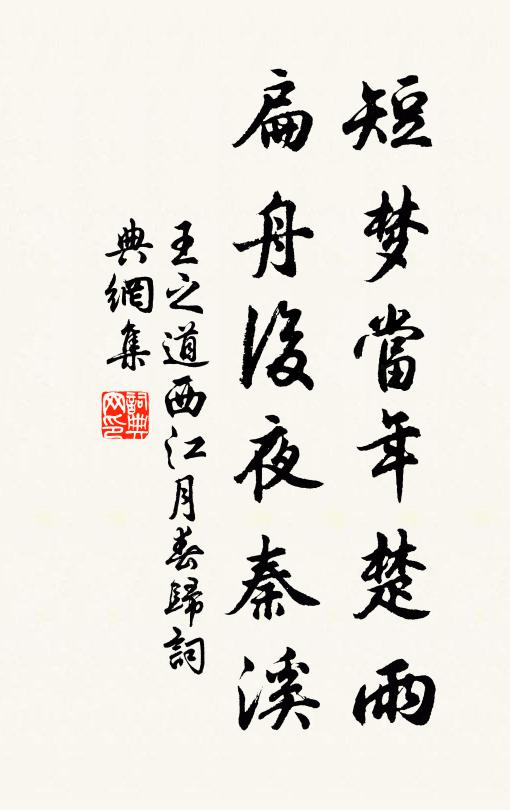 短梦當年楚雨
扁舟後夜秦溪
王之道西江月春歸詞
典網集
詞典
网印